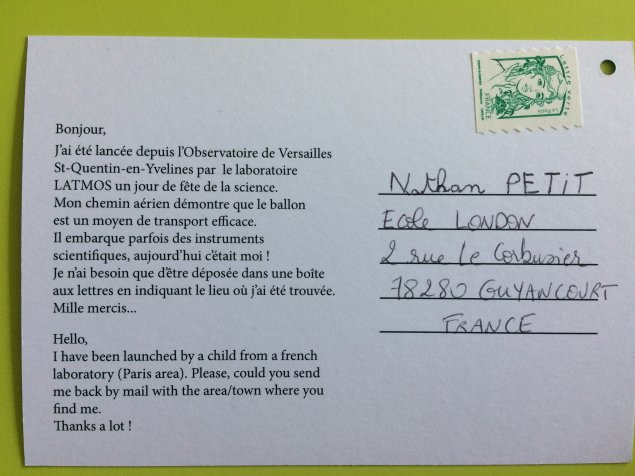 Bonjour,
J'ai été lancée depuis l'Observatoire de Versailles
St-Quentin-en-Yvelines par le laboratoire
LATMOS un jour de fête de la science.
Mon chemin aérien démontre que le ballon
est un moyen de transport efficace.
Il embarque parfois des instruments
scientifiques, aujourd'hui c'était moi !
Je n'ai besoin que d'être déposée dans une boîte
aux lettres en indiquant le lieu où j'ai été trouvée.
Mille mercis...
Hello,
I have been launched by a child from a french
laboratory (Paris area). Please, could you send
me back by mail with the area/town where you
find me.
Thanks a lot !
Lettre verte
FRANCE
La Poste
Nathan PETIT
Ecole LONDON
2 rue le Corbusier
78280 GUYANCOURT
FRANCE